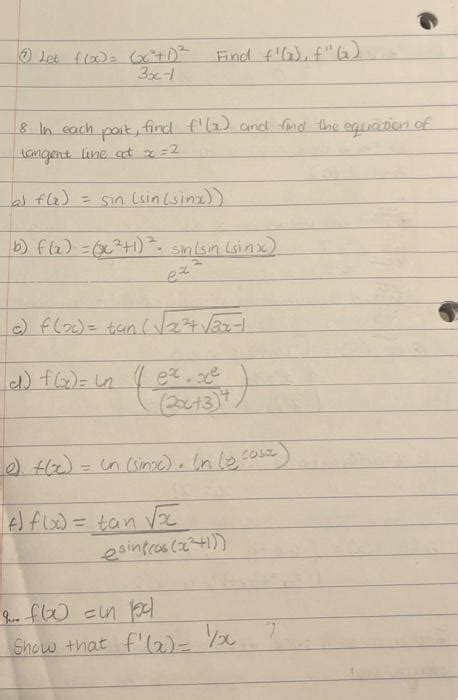 ⑦ Let f(x) = (x²+1)² / 3x-1 Find f'(x), f''(x)
8. In each part, find f'(x) and find the equation of
tangent line at x=2
a) f(x) = sin (sin(sinx))
b) f(x) = (x²+1)² · sin(sin(sinx) / e^x²
c) f(x) = tan (√x²+√3x-1
d) f(x) = ln (e^x · x^e / (2x+3)⁴)
e) f(x) = ln (sinx) · ln (e^cosx)
f) f(x) = tan √x / e^sin(cos(x²+1))
9. f(x) = ln |x|
Show that f'(x) = 1/x